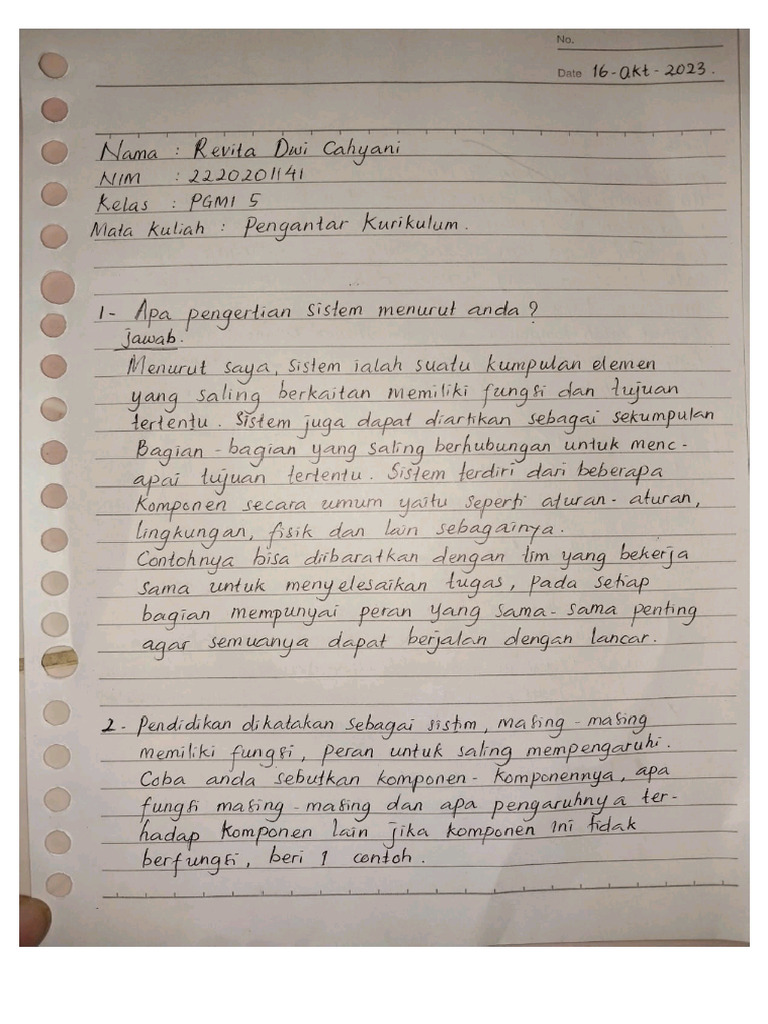 No.
Date 16-Okt-2023.
Nama : Revita Dwi Cahyani
NIM : 2220201141
Kelas : PGMI 5
Mata Kuliah : Pengantar Kurikulum.
1- Apa pengertian sistem menurut anda?
jawab.
Menurut saya, sistem ialah suatu kumpulan elemen
yang saling berkaitan memiliki fungsi dan tujuan
tertentu. Sistem juga dapat diartikan sebagai sekumpulan
Bagian-bagian yang saling berhubungan untuk menc-
apai tujuan tertentu. Sistem terdiri dari beberapa
Komponen secara umum yaitu seperti aturan-aturan,
lingkungan, fisik dan lain sebagainya.
Contohnya bisa diibaratkan dengan tim yang bekerja
sama untuk menyelesaikan tugas, pada setiap
bagian mempunyai peran yang sama-sama penting
agar semuanya dapat berjalan dengan lancar.
2- Pendidikan dikatakan sebagai sistim, masing-masing
memiliki fungsi, peran untuk saling mempengaruhi.
Coba anda sebutkan komponen-Komponennya, apa
fungsi masing-masing dan apa pengaruhnya ter-
hadap Komponen lain jika komponen ini tidak
berfungsi, beri 1 contoh.